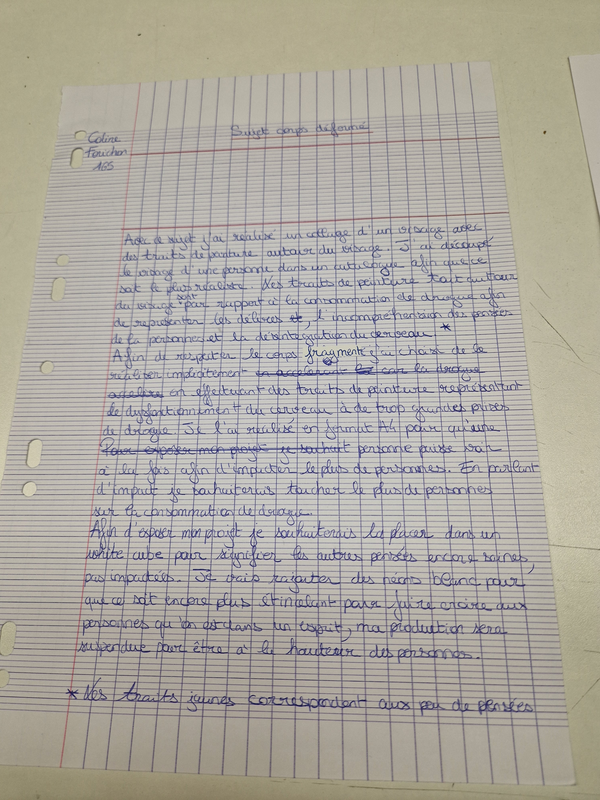 Coline
Fouchon
1G5
Sujet corps déformé
Avec ce sujet j'ai réalisé un collage d'un visage avec
des traits de peinture autour du visage. J'ai découpé
le visage d'une personne dans un catalogue afin que ce
soit le plus réaliste. Les traits de peinture tout autour
du visage sont par rapport à la consommation de drogue afin
de représenter les délires et, l'incompréhension des pensées
de la personnes et la désintégration du cerveau *
Afin de respecter le corps fragmenté j'ai choisi de le
réaliser implicitement car la drogue
en effectuant des traits de peinture représentant
le dysfonctionnement du cerveau à de trop grandes prises
de drogue. Je l'ai réalisé en format A4 pour qu'une
Pour exposer mon projet je souhait personne puisse voir
à la fois afin d'impacter le plus de personnes. En parlant
d'impact je souhaiterais toucher le plus de personnes
sur la consommation de drogue.
Afin d'exposer mon projet je souhaiterais la placer dans un
white cube pour signifier les autres pensées encore saines,
pas impactées. Je vais rajouter des néons blanc pour
que ce soit encore plus étincelant pour faire croire aux
personnes qu'on est dans un esprit, ma production sera
suspendue pour être à la hauteur des personnes.
* Les traits jaunes correspondent aux peu de pensées